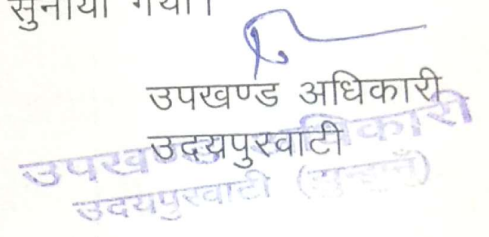 सुनाया गया।
उपखण्ड अधिकारी
उदयपुरवाटी
उपखण्ड अधिकारी
उदयपुरवाटी (झुन्झुनूँ)